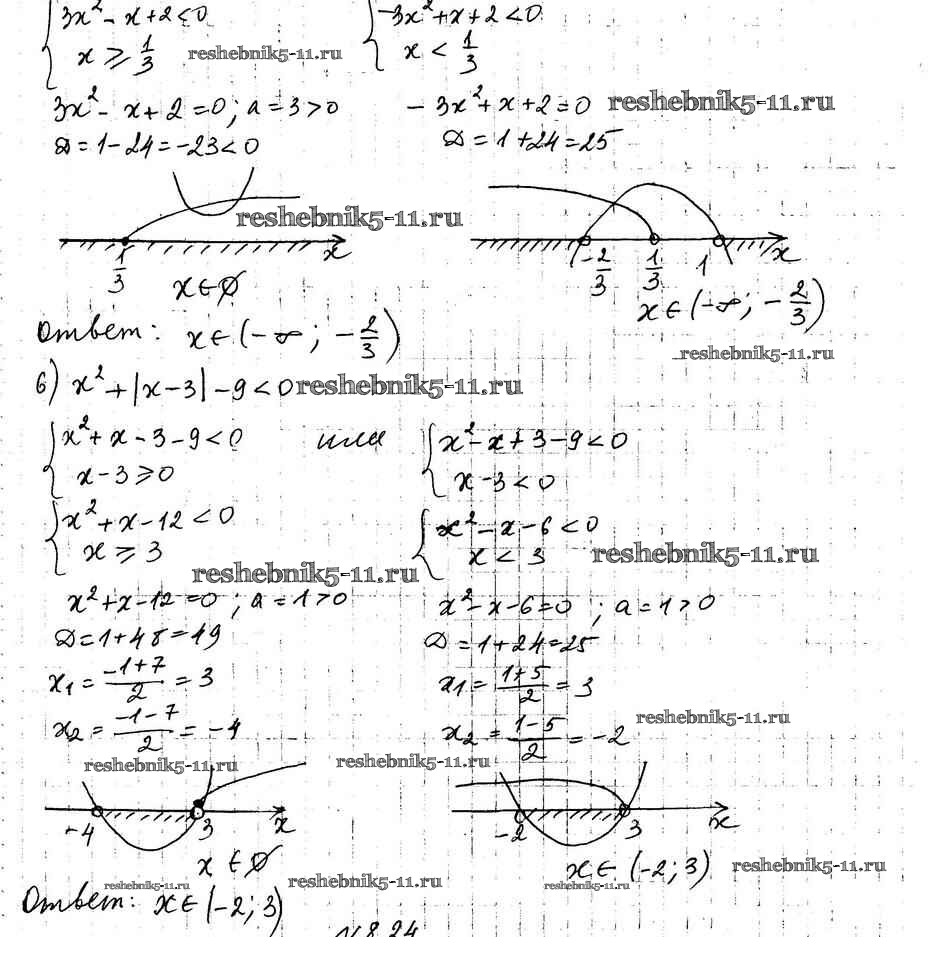 3x² - x + 2 < 0    -3x² + x + 2 < 0
x ≥ 1/3    reshebnik5-11.ru    x < 1/3
3x² - x + 2 = 0; a = 3 > 0    -3x² + x + 2 = 0    reshebnik5-11.ru
D = 1 - 24 = -23 < 0    D = 1 + 24 = 25
reshebnik5-11.ru
1/3    x    -2/3    1/3    1    x
x ∈ ∅    x ∈ (-∞; -2/3)
Ответ: x ∈ (-∞; -2/3)    reshebnik5-11.ru
б) x² + |x - 3| - 9 < 0    reshebnik5-11.ru
x² + x - 3 - 9 < 0    или    x² - x + 3 - 9 < 0
x - 3 ≥ 0    x - 3 < 0
x² + x - 12 < 0    x² - x - 6 < 0
x ≥ 3    x < 3    reshebnik5-11.ru
reshebnik5-11.ru
x² + x - 12 = 0; a = 1 > 0    x² - x - 6 = 0; a = 1 > 0
D = 1 + 48 = 49    D = 1 + 24 = 25
x₁ = (-1+7)/2 = 3    x₁ = (1+5)/2 = 3
x₂ = (-1-7)/2 = -4    x₂ = (1-5)/2 = -2    reshebnik5-11.ru
reshebnik5-11.ru    reshebnik5-11.ru
-4    3    x    -2    3    x
x ∈ ∅    x ∈ (-2; 3)    reshebnik5-11.ru
reshebnik5-11.ru    reshebnik5-11.ru    reshebnik5-11.ru
Ответ: x ∈ (-2; 3)